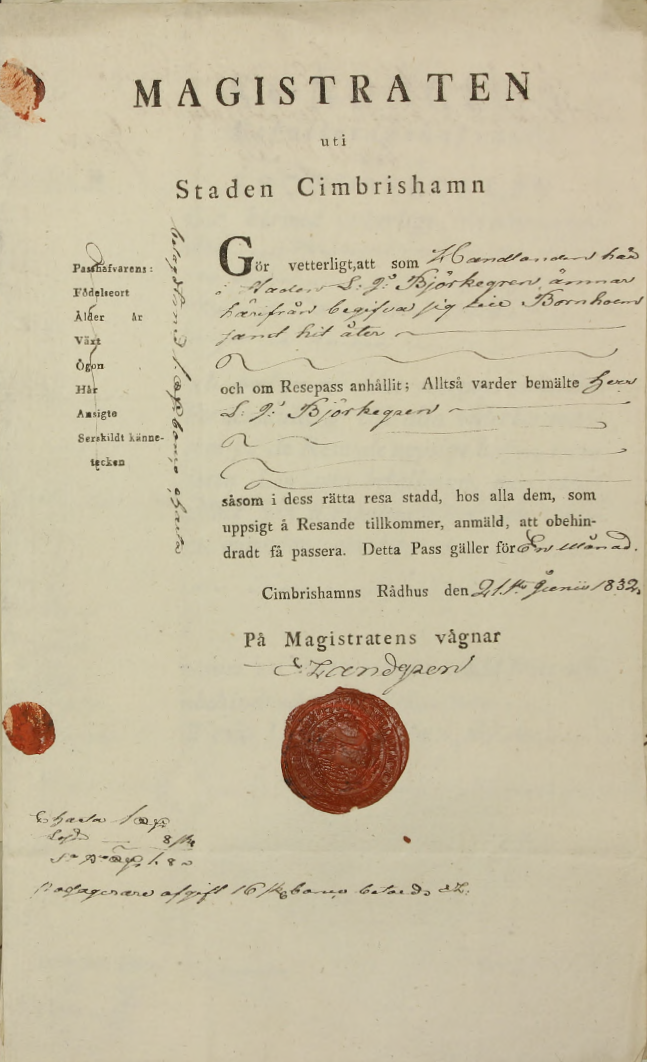 MAGISTRATEN
uti
Staden Cimbrishamn
Passhafvarens:
Födelseort
Ålder år
Växt
Ögon
Hår
Ansigte
Serskildt känne-
tecken
Gör vetterligt, att som Handlanden här
i Staden L: P: Björkegren ämnar
härifrån begifva sig till Bornholm
samt hit åter
och om Resepass anhållit; Alltså varder bemälte Herr
L: P: Björkegren
såsom i dess rätta resa stadd, hos alla dem, som
uppsigt å Resande tillkommer, anmäld, att obehin-
dradt få passera. Detta Pass gäller för En Månad.
Cimbrishamns Rådhus den 21 Junii 1832.
På Magistratens vägnar
Charta
afgift 16 banco